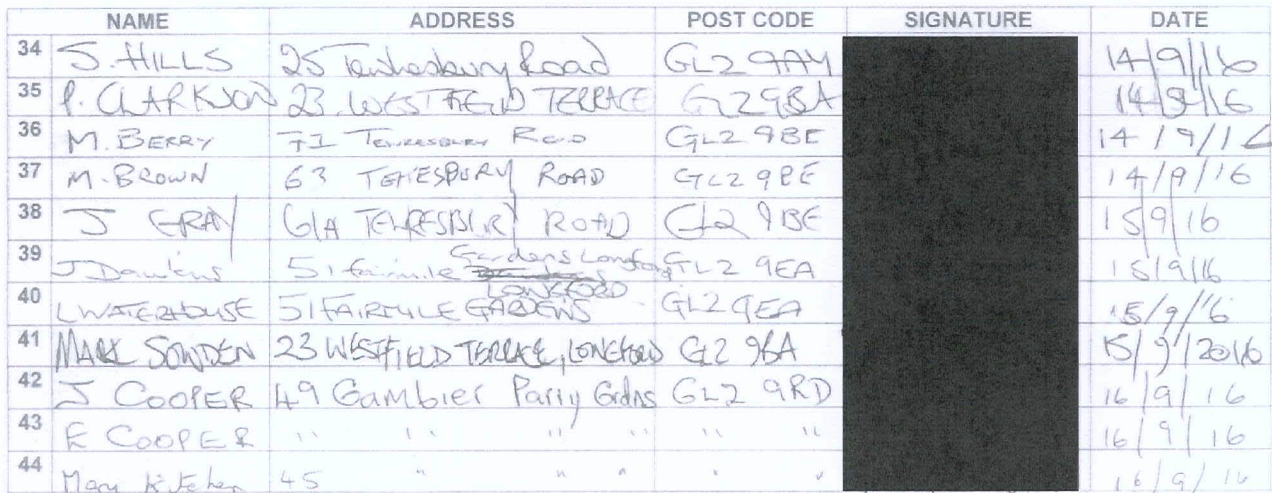 NAME ADDRESS POST CODE SIGNATURE DATE
34 S. HILLS 25 Tewkesbury Road GL2 9AY 14/9/16
35 P. CLARKSON 23. WESTFIELD TERRACE GL2 9BA 14/9/16
36 M. BERRY 71 Tewkesbury Road GL2 9BE 14/9/16
37 M. BROWN 63 TEKESBURY ROAD GL2 9BE 14/9/16
38 J GRAY 61A TEWKESBURY ROAD GL2 9BE 15/9/16
39 J Dawkins 51 fairmile Gardens Longford GL2 9EA 15/9/16
40 L WATERHOUSE 51 FAIRMILE GARDENS LONGFORD GL2 9EA 15/9/16
41 MARK SOWDEN 23 WESTFIELD TERRACE, LONGFORD GL2 9BA 15/9/2016
42 J COOPER 49 Gambier Parry Grdns GL2 9RD 16/9/16
43 E COOPER " " " " " " 16/9/16
44 Mary Kitchen 45 " " " " " 16/9/16